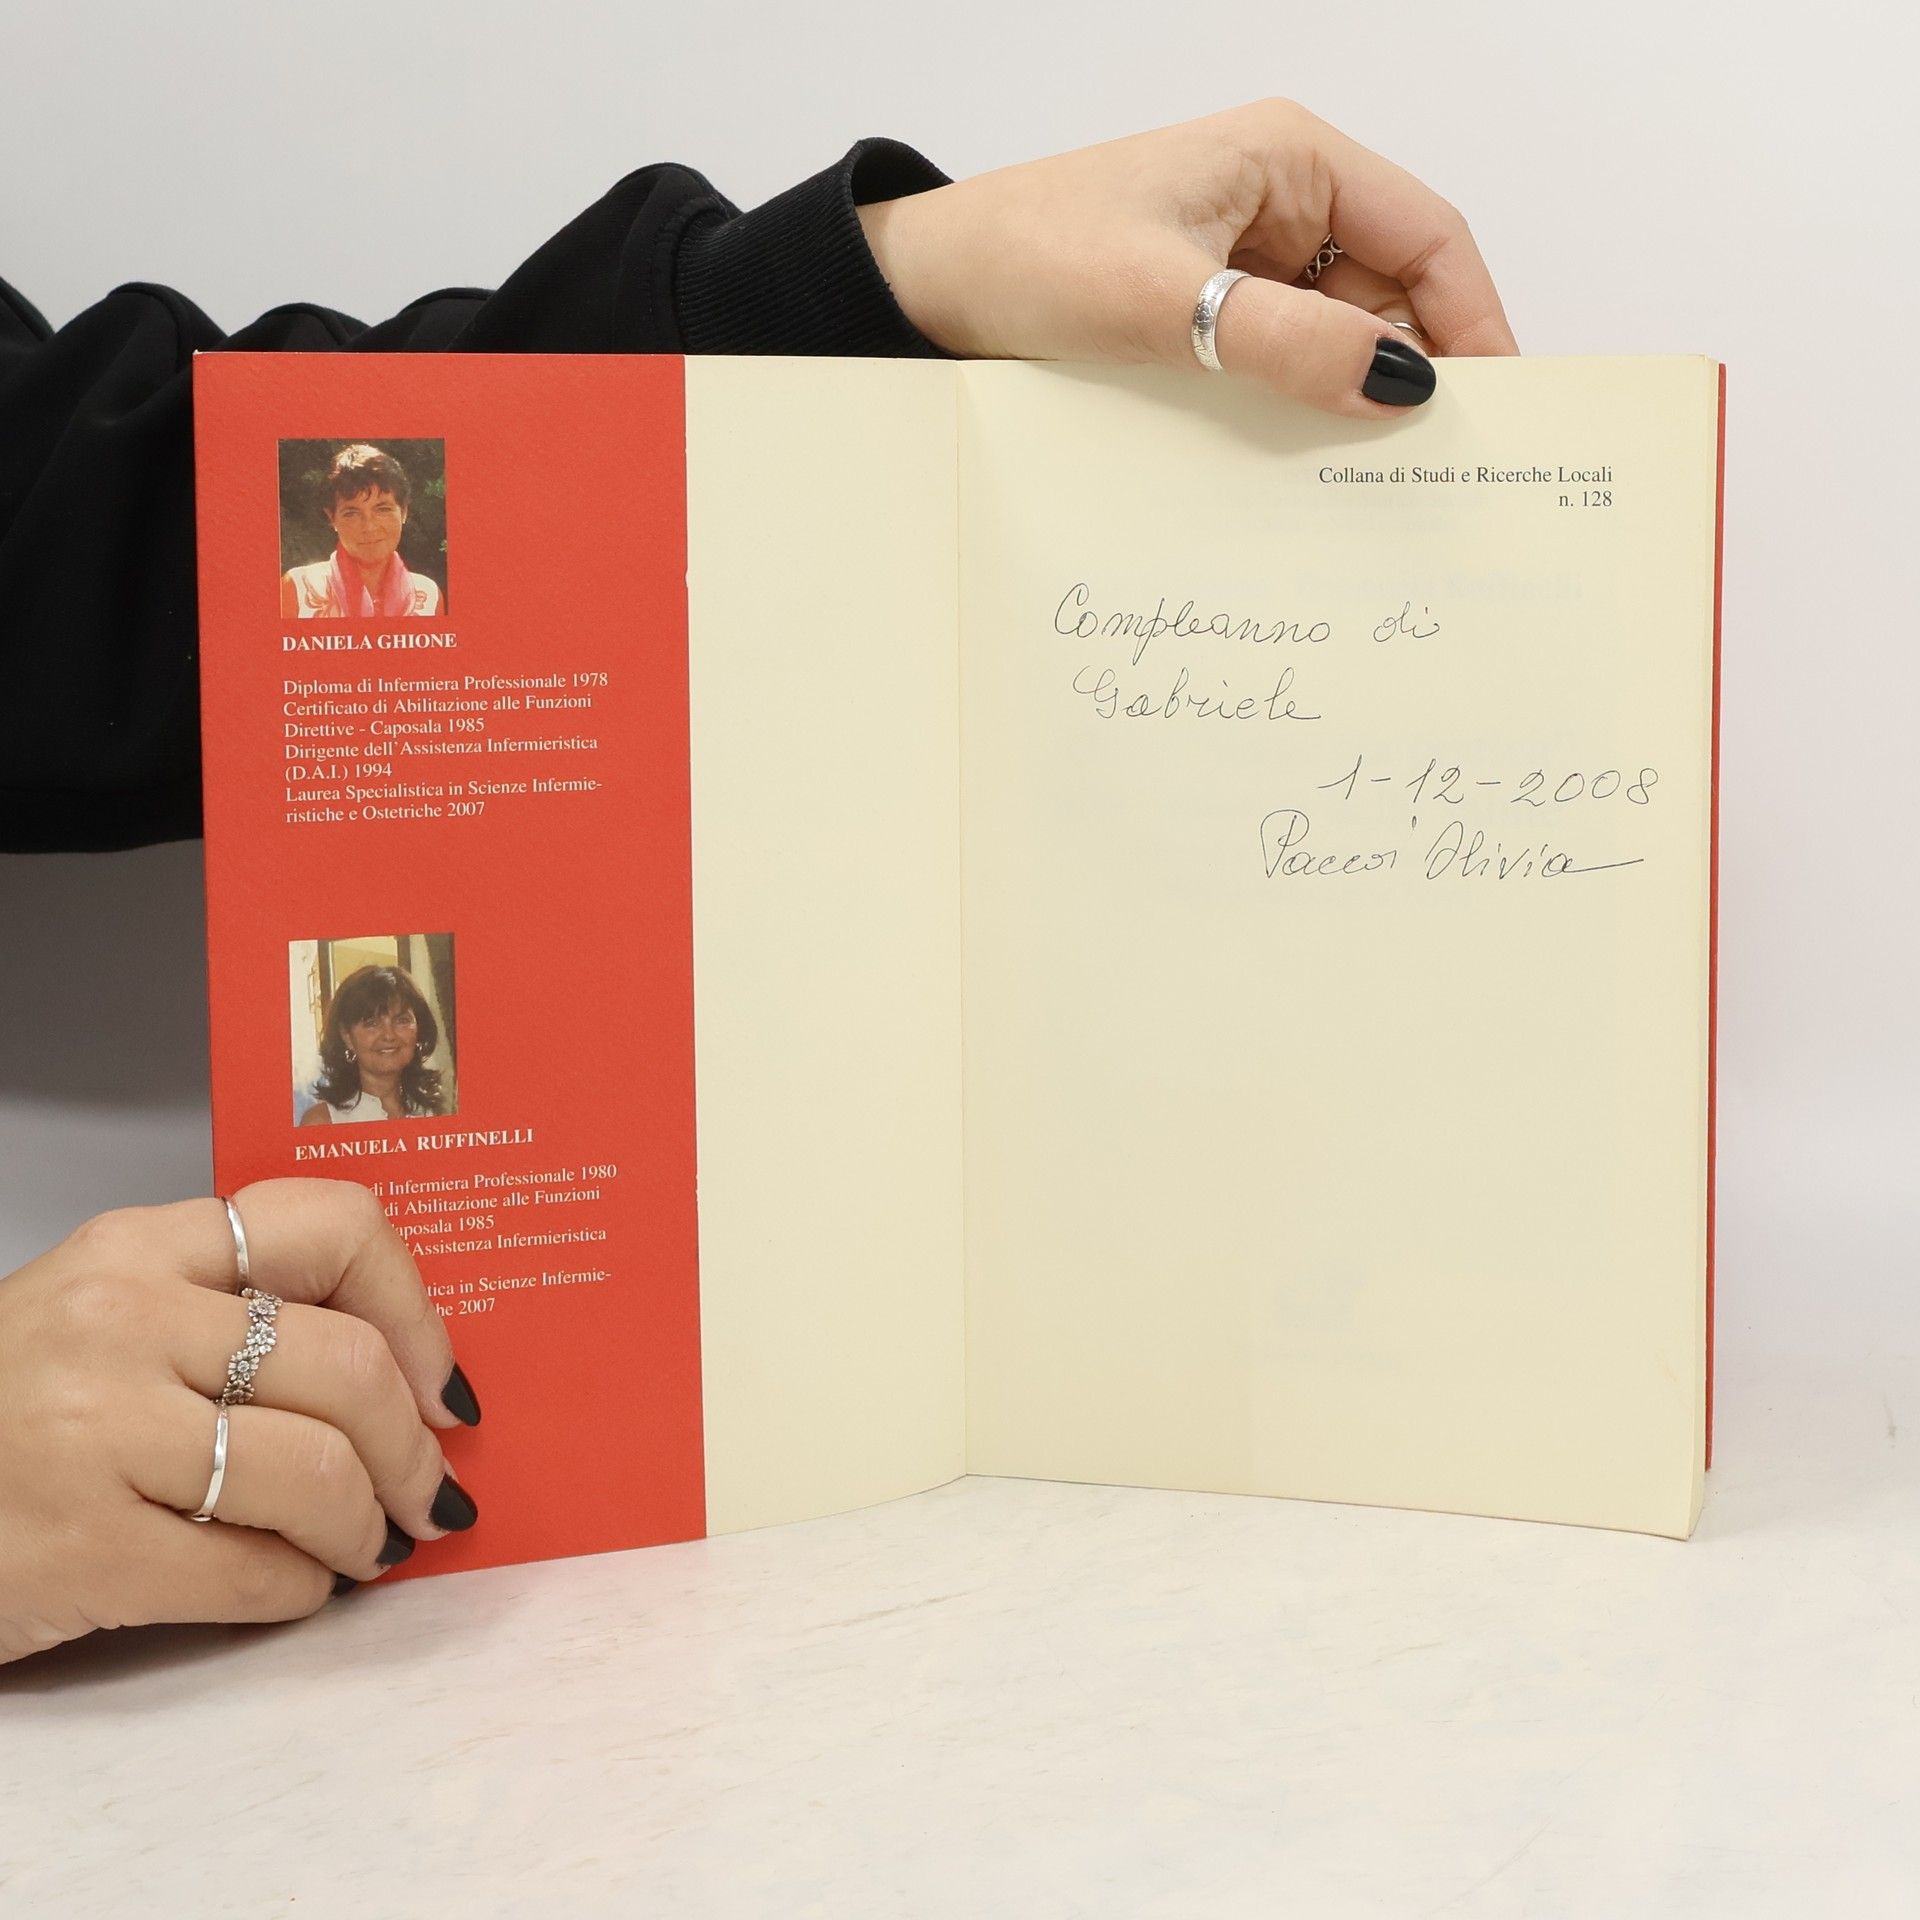 DANIELA GHIONE
Diploma di Infermiera Professionale 1978
Certificato di Abilitazione alle Funzioni
Direttive - Caposala 1985
Dirigente dell'Assistenza Infermieristica
(D.A.I.) 1994
Laurea Specialistica in Scienze Infermie-
ristiche e Ostetriche 2007
EMANUELA RUFFINELLI
di Infermiera Professionale 1980
di Abilitazione alle Funzioni
aposala 1985
'Assistenza Infermieristica
tica in Scienze Infermie-
he 2007
Collana di Studi e Ricerche Locali
n. 128
Compleanno di
Gabriele
1-12-2008
Olivia